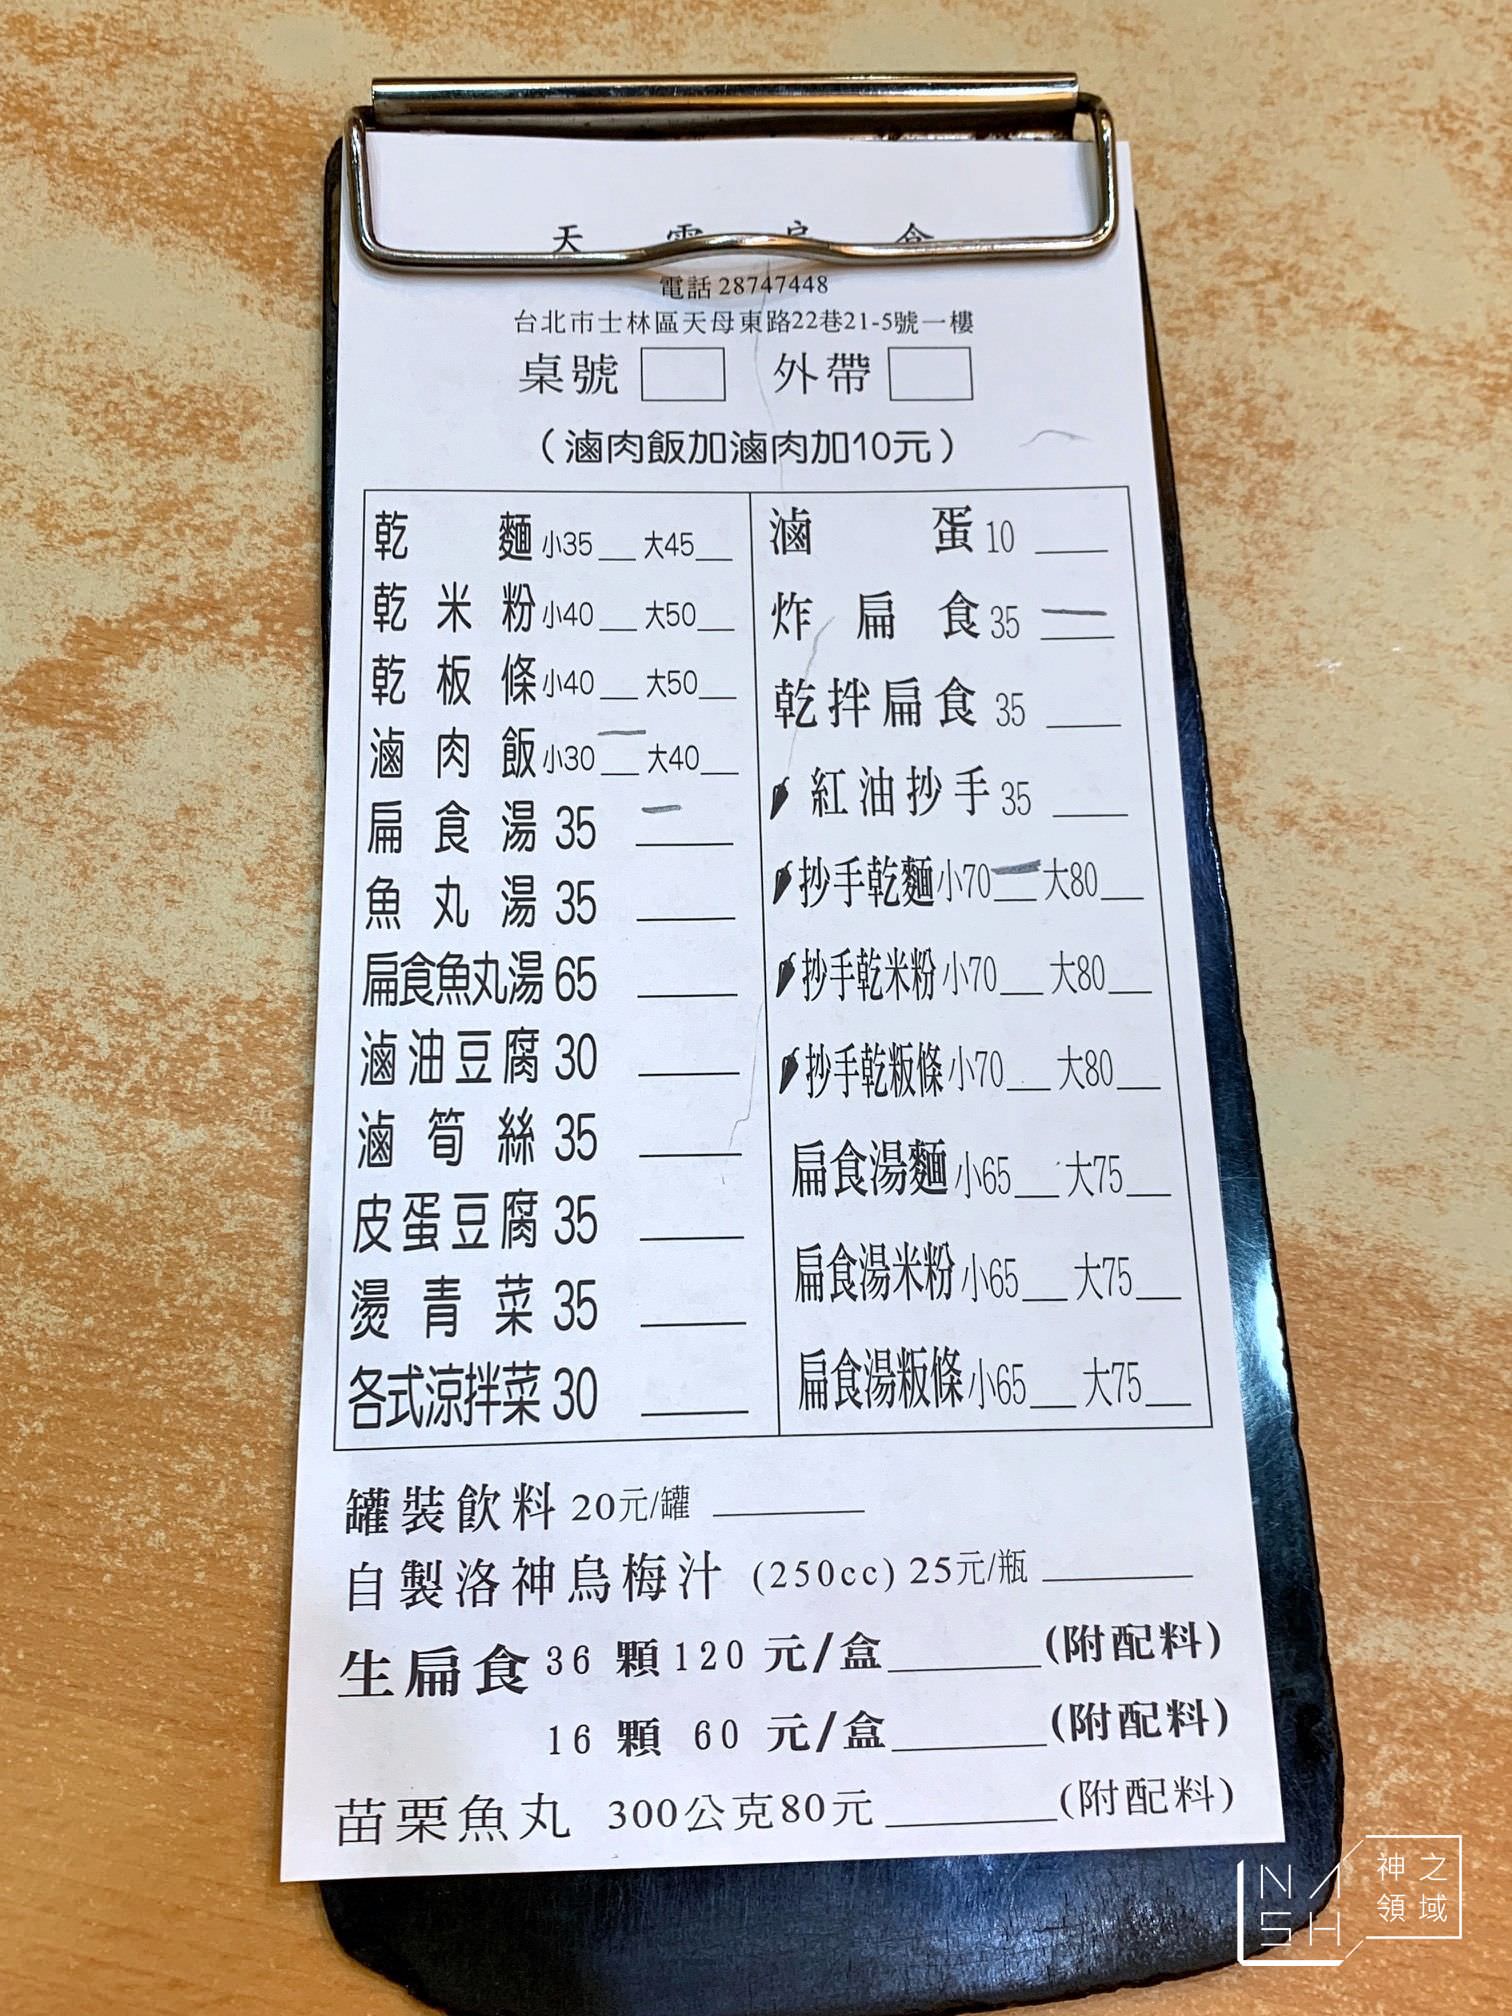 天
電話 28747448
台北市士林區天母東路22巷21-5號一樓
桌號 外帶
（滷肉飯加滷肉加10元）
乾麵 小35__ 大45__
乾米粉 小40__ 大50__
乾板條 小40__ 大50__
滷肉飯 小30__ 大40__
扁食湯 35 ____
魚丸湯 35 ____
扁食魚丸湯 65 ____
滷油豆腐 30 ____
滷筍絲 35 ____
皮蛋豆腐 35 ____
燙青菜 35 ____
各式涼拌菜 30 ____
滷蛋 10 ____
炸扁食 35 ____
乾拌扁食 35 ____
紅油抄手 35 ____
抄手乾麵 小70__ 大80__
抄手乾米粉 小70__ 大80__
抄手乾粄條 小70__ 大80__
扁食湯麵 小65__ 大75__
扁食湯米粉 小65__ 大75__
扁食湯粄條 小65__ 大75__
罐裝飲料 20元/罐 ____
自製洛神烏梅汁 (250cc) 25元/瓶 ____
生扁食 36 顆 120 元/盒____(附配料)
16 顆 60 元/盒____(附配料)
苗栗魚丸 300公克80元____(附配料)
NASH 神之領域